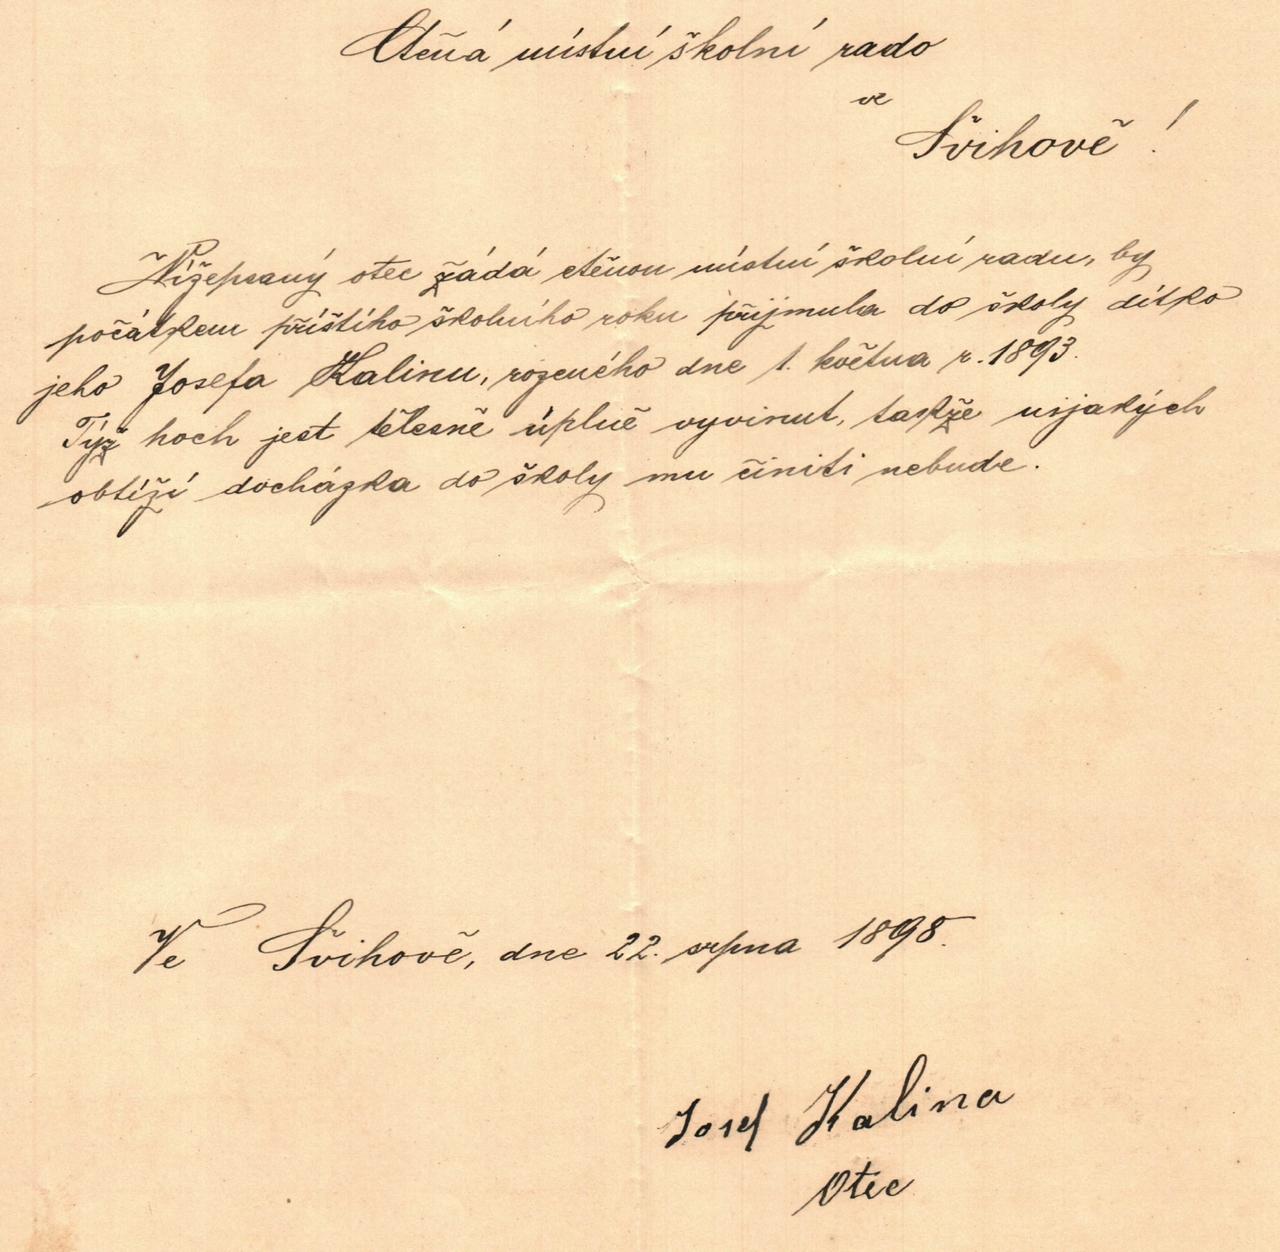 Ctěná místní školní rado
ve
Švihově!
Nížepsaný otec žádá ctěnou místní školní radu, by
počátkem příštího školního roku přijmula do školy dítko
jeho Josefa Kalinu, rozeného dne 1. května r. 1893.
Týž hoch jest tělesně úplně vyvinut, takže nijakých
obtíží docházka do školy mu činiti nebude.
Ve Švihově, dne 22. srpna 1898.
Josef Kalina
Otec